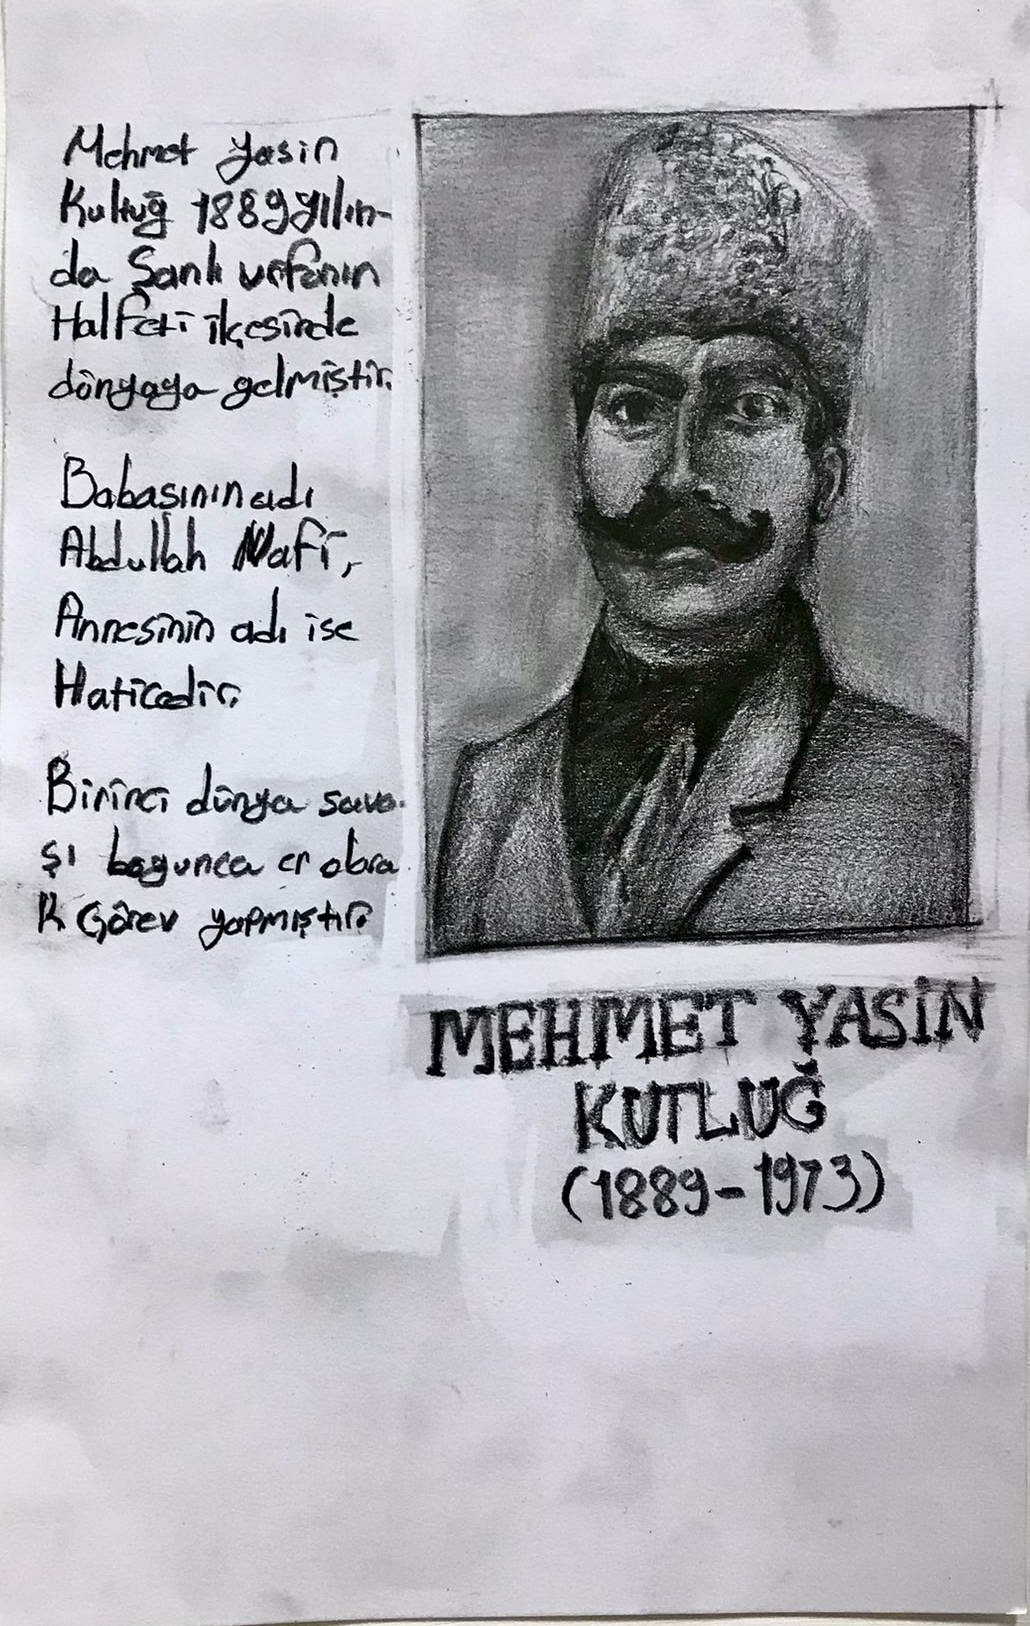 Mehmet Yasin
Kultuğ 1889 yılın-
da Şanlı urfanın
Halfeti ilçesinde
dünyaya gelmiştir.
Babasının adı
Abdullah Nafi,
Annesinin adı ise
Haticedir.
Birinci dünya sava-
şı başyunca er olara
k Görev yapmıştır.
MEHMET YASİN
KUTLUĞ
(1889-1973)